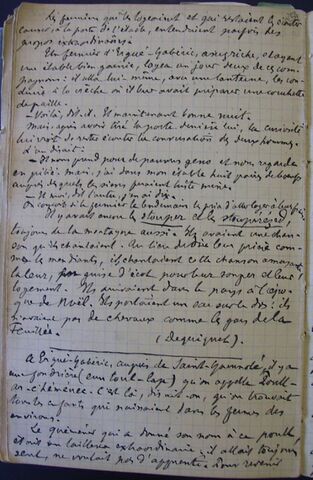 les fermiers qui les logeaient et qui restaient les écouter
causer, à la porte de l'étable, entendirent parfois des
propos extraordinaires.
Un fermier d'Ergué-Gabéric, assez riche, et ayant
une étable bien garnie, logea un jour deux de ces com-
pagnons : il alla lui-même, avec une lanterne, les con-
duire à la crèche où il leur avait préparé une couchette
de paille.
— Voilà, dit-il. Et maintenant bonne nuit.
Mais, après avoir tiré la porte derrière lui, la curiosité
lui vint de rester écouter la conversation des deux hommes.
L'un disait :
— Il nous prend pour de pauvres gens et nous regarde
en pitié. Mais, j'ai dans mon étable huit paires de bœufs
auprès desquels les siens paraîtraient
— Et moi, dit l'autre, j'en ai dix.
On comprit si le fermier le lendemain
Il y avait encore les stouper et les
toujours de la montagne aussi. Ils avaient une chan-
son qu'ils chantaient. Au lieu de dire leur prière com-
me les mendiants, ils chantaient cette chanson
la leur, en guise d'écot pour leur souper et leur
logement. Ils arrivaient dans le pays à l'épo-
que de Noël. Ils portaient un sac sur le dos : ils
n'avaient pas de chevaux comme les gars de La
Feuillée.
(Déguignet)
A Ergué-Gabéric, auprès de Saint-Guénolé, il y a
une fondrière (eun toull-lap) qu'on appelle Poull-
ar-C'héméner. C'est là, disait-on, qu'on trouvait
tous les enfants qui naissaient dans les fermes des
environs.
Le quéméner qui a donné son nom à ce poull,
était un tailleur extraordinaire : il allait toujours
seul, ne voulait pas d'apprenti. Pour revenir